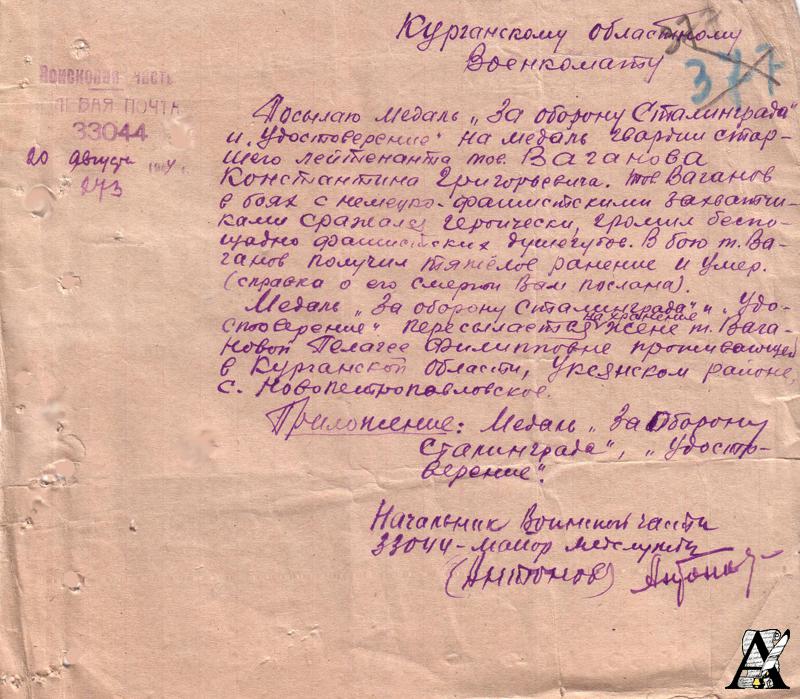 Курганскому областному
Военкомату
377
377
Войсковая часть
ПОЛЕВАЯ ПОЧТА
33044
20 августа 194 г.
273
Посылаю медаль „За оборону Сталинграда"
и „Удостоверение" на медаль гвардии стар-
шего лейтенанта тов. Ваганова
Константина Григорьевича. Тов Ваганов
в боях с немецко-фашистскими захватчи-
ками сражался героически, громил беспо-
щадно фашистских душегубов. В бою т. Ва-
ганов получил тяжёлое ранение и умер.
(справка о его смерти Вам послана).
Медаль „За оборону Сталинграда" и „Удо-
стоверение" пересылается на хранение жене т. Вага-
новой Пелагее Филипповне проживающей
в Курганской области, Уксянском районе,
с. Новопетропавловское.
Приложение: Медаль „За Оборону
Сталинграда", „Удосто-
верение".
Начальник Воинской части
33044 - майор медслужбы
(Антонов) Антонов
А